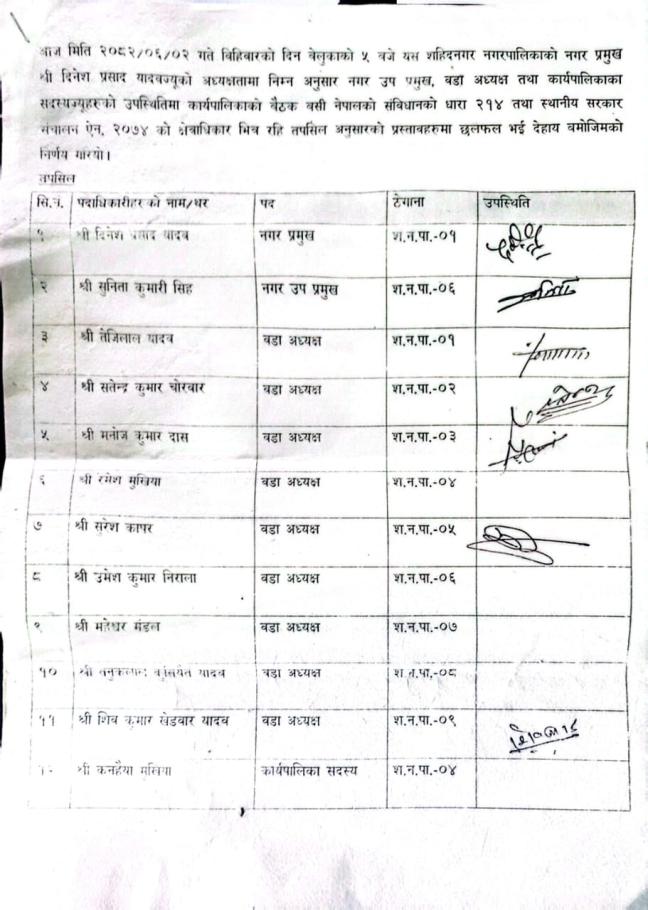 आज मिति २०८२/०६/०२ गते बिहिबारको दिन बेलुकाको ५ बजे यस शहिदनगर नगरपालिकाको नगर प्रमुख
श्री दिनेश प्रसाद यादवज्यूको अध्यक्षतामा निम्न अनुसार नगर उप प्रमुख, वडा अध्यक्ष तथा कार्यपालिकाका
सदस्यज्यूहरुको उपस्थितिमा कार्यपालिकाको बैठक बसी नेपालको संविधानको धारा २१४ तथा स्थानीय सरकार
संचालन ऐन, २०७४ को क्षेत्राधिकार भित्र रहि तपसिल अनुसारको प्रस्तावहरुमा छलफल भई देहाय बमोजिमको
निर्णय गरियो।
तपसिल
सि.नं. पदाधिकारीहरु को नाम/थर पद ठेगाना उपस्थिति
१ श्री दिनेश प्रसाद यादव नगर प्रमुख श.न.पा.-०१
२ श्री सुनिता कुमारी सिंह नगर उप प्रमुख श.न.पा.-०६
३ श्री तेजिलाल यादव वडा अध्यक्ष श.न.पा.-०१
४ श्री सतेन्द्र कुमार चोरवार वडा अध्यक्ष श.न.पा.-०२
५ श्री मनोज कुमार दास वडा अध्यक्ष श.न.पा.-०३
६ श्री रमेश मुखिया वडा अध्यक्ष श.न.पा.-०४
७ श्री सुरेश कापर वडा अध्यक्ष श.न.पा.-०५
८ श्री उमेश कुमार निराला वडा अध्यक्ष श.न.पा.-०६
९ श्री महेश्वर मंडल वडा अध्यक्ष श.न.पा.-०७
१० श्री यादव वडा अध्यक्ष श.न.पा.-०८
११ श्री शिव कुमार खेडवार यादव वडा अध्यक्ष श.न.पा.-०९
श्री कनहैया मुखिया कार्यपालिका सदस्य श.न.पा.-०४